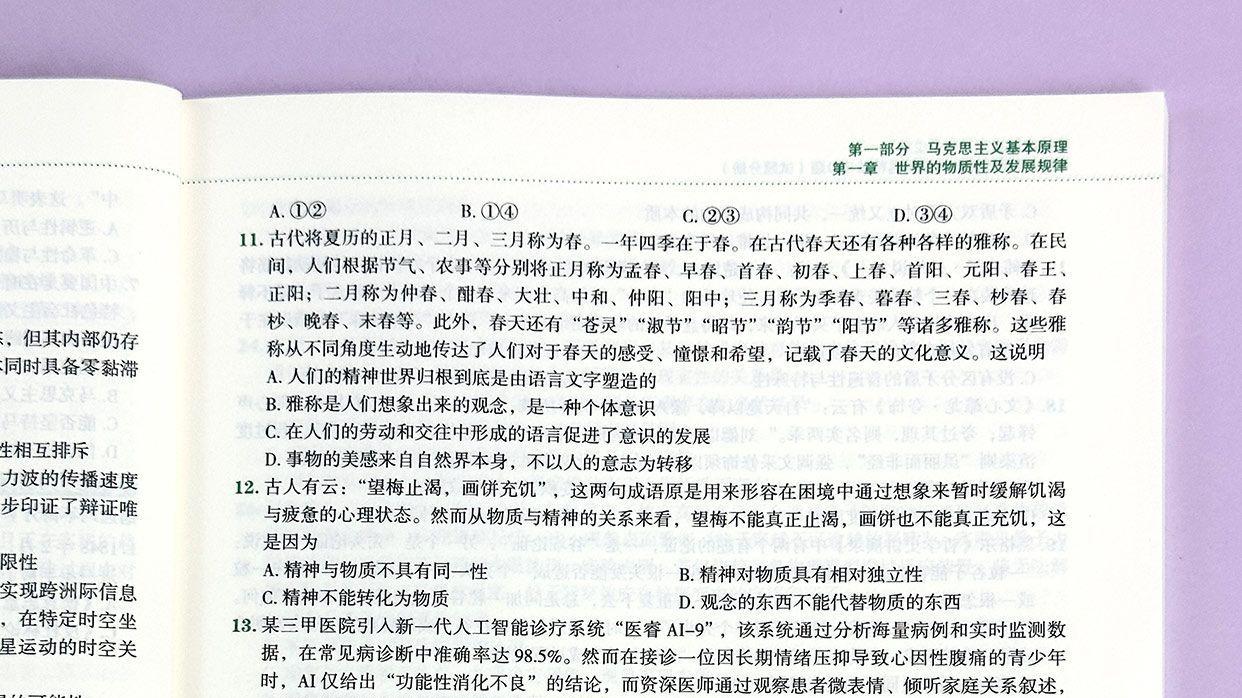 第一部分 马克思主义基本原理
第一章 世界的物质性及发展规律
，但其内部仍存
同时具备零黏滞
性相互排斥
力波的传播速度
步印证了辩证唯
限性
实现跨洲际信息
，在特定时空坐
星运动的时空关
A. ①② B. ①④ C. ②③ D. ③④
11. 古代将夏历的正月、二月、三月称为春。一年四季在于春。在古代春天还有各种各样的雅称。在民
间，人们根据节气、农事等分别将正月称为孟春、早春、首春、初春、上春、首阳、元阳、春王、
正阳；二月称为仲春、酣春、大壮、中和、仲阳、阳中；三月称为季春、暮春、三春、杪春、春
杪、晚春、末春等。此外，春天还有“苍灵”“淑节”“昭节”“韵节”“阳节”等诸多雅称。这些雅
称从不同角度生动地传达了人们对于春天的感受、憧憬和希望，记载了春天的文化意义。这说明
A. 人们的精神世界归根到底是由语言文字塑造的
B. 雅称是人们想象出来的观念，是一种个体意识
C. 在人们的劳动和交往中形成的语言促进了意识的发展
D. 事物的美感来自自然界本身，不以人的意志为转移
12. 古人有云：“望梅止渴，画饼充饥”，这两句成语原是用来形容在困境中通过想象来暂时缓解饥渴
与疲惫的心理状态。然而从物质与精神的关系来看，望梅不能真正止渴，画饼也不能真正充饥，这
是因为
A. 精神与物质不具有同一性 B. 精神对物质具有相对独立性
C. 精神不能转化为物质 D. 观念的东西不能代替物质的东西
13. 某三甲医院引入新一代人工智能诊疗系统“医睿 AI-9”，该系统通过分析海量病例和实时监测数
据，在常见病诊断中准确率达 98.5%。然而在接诊一位因长期情绪压抑导致心因性腹痛的青少年
时，AI 仅给出“功能性消化不良”的结论，而资深医师通过观察患者微表情、倾听家庭关系叙述，